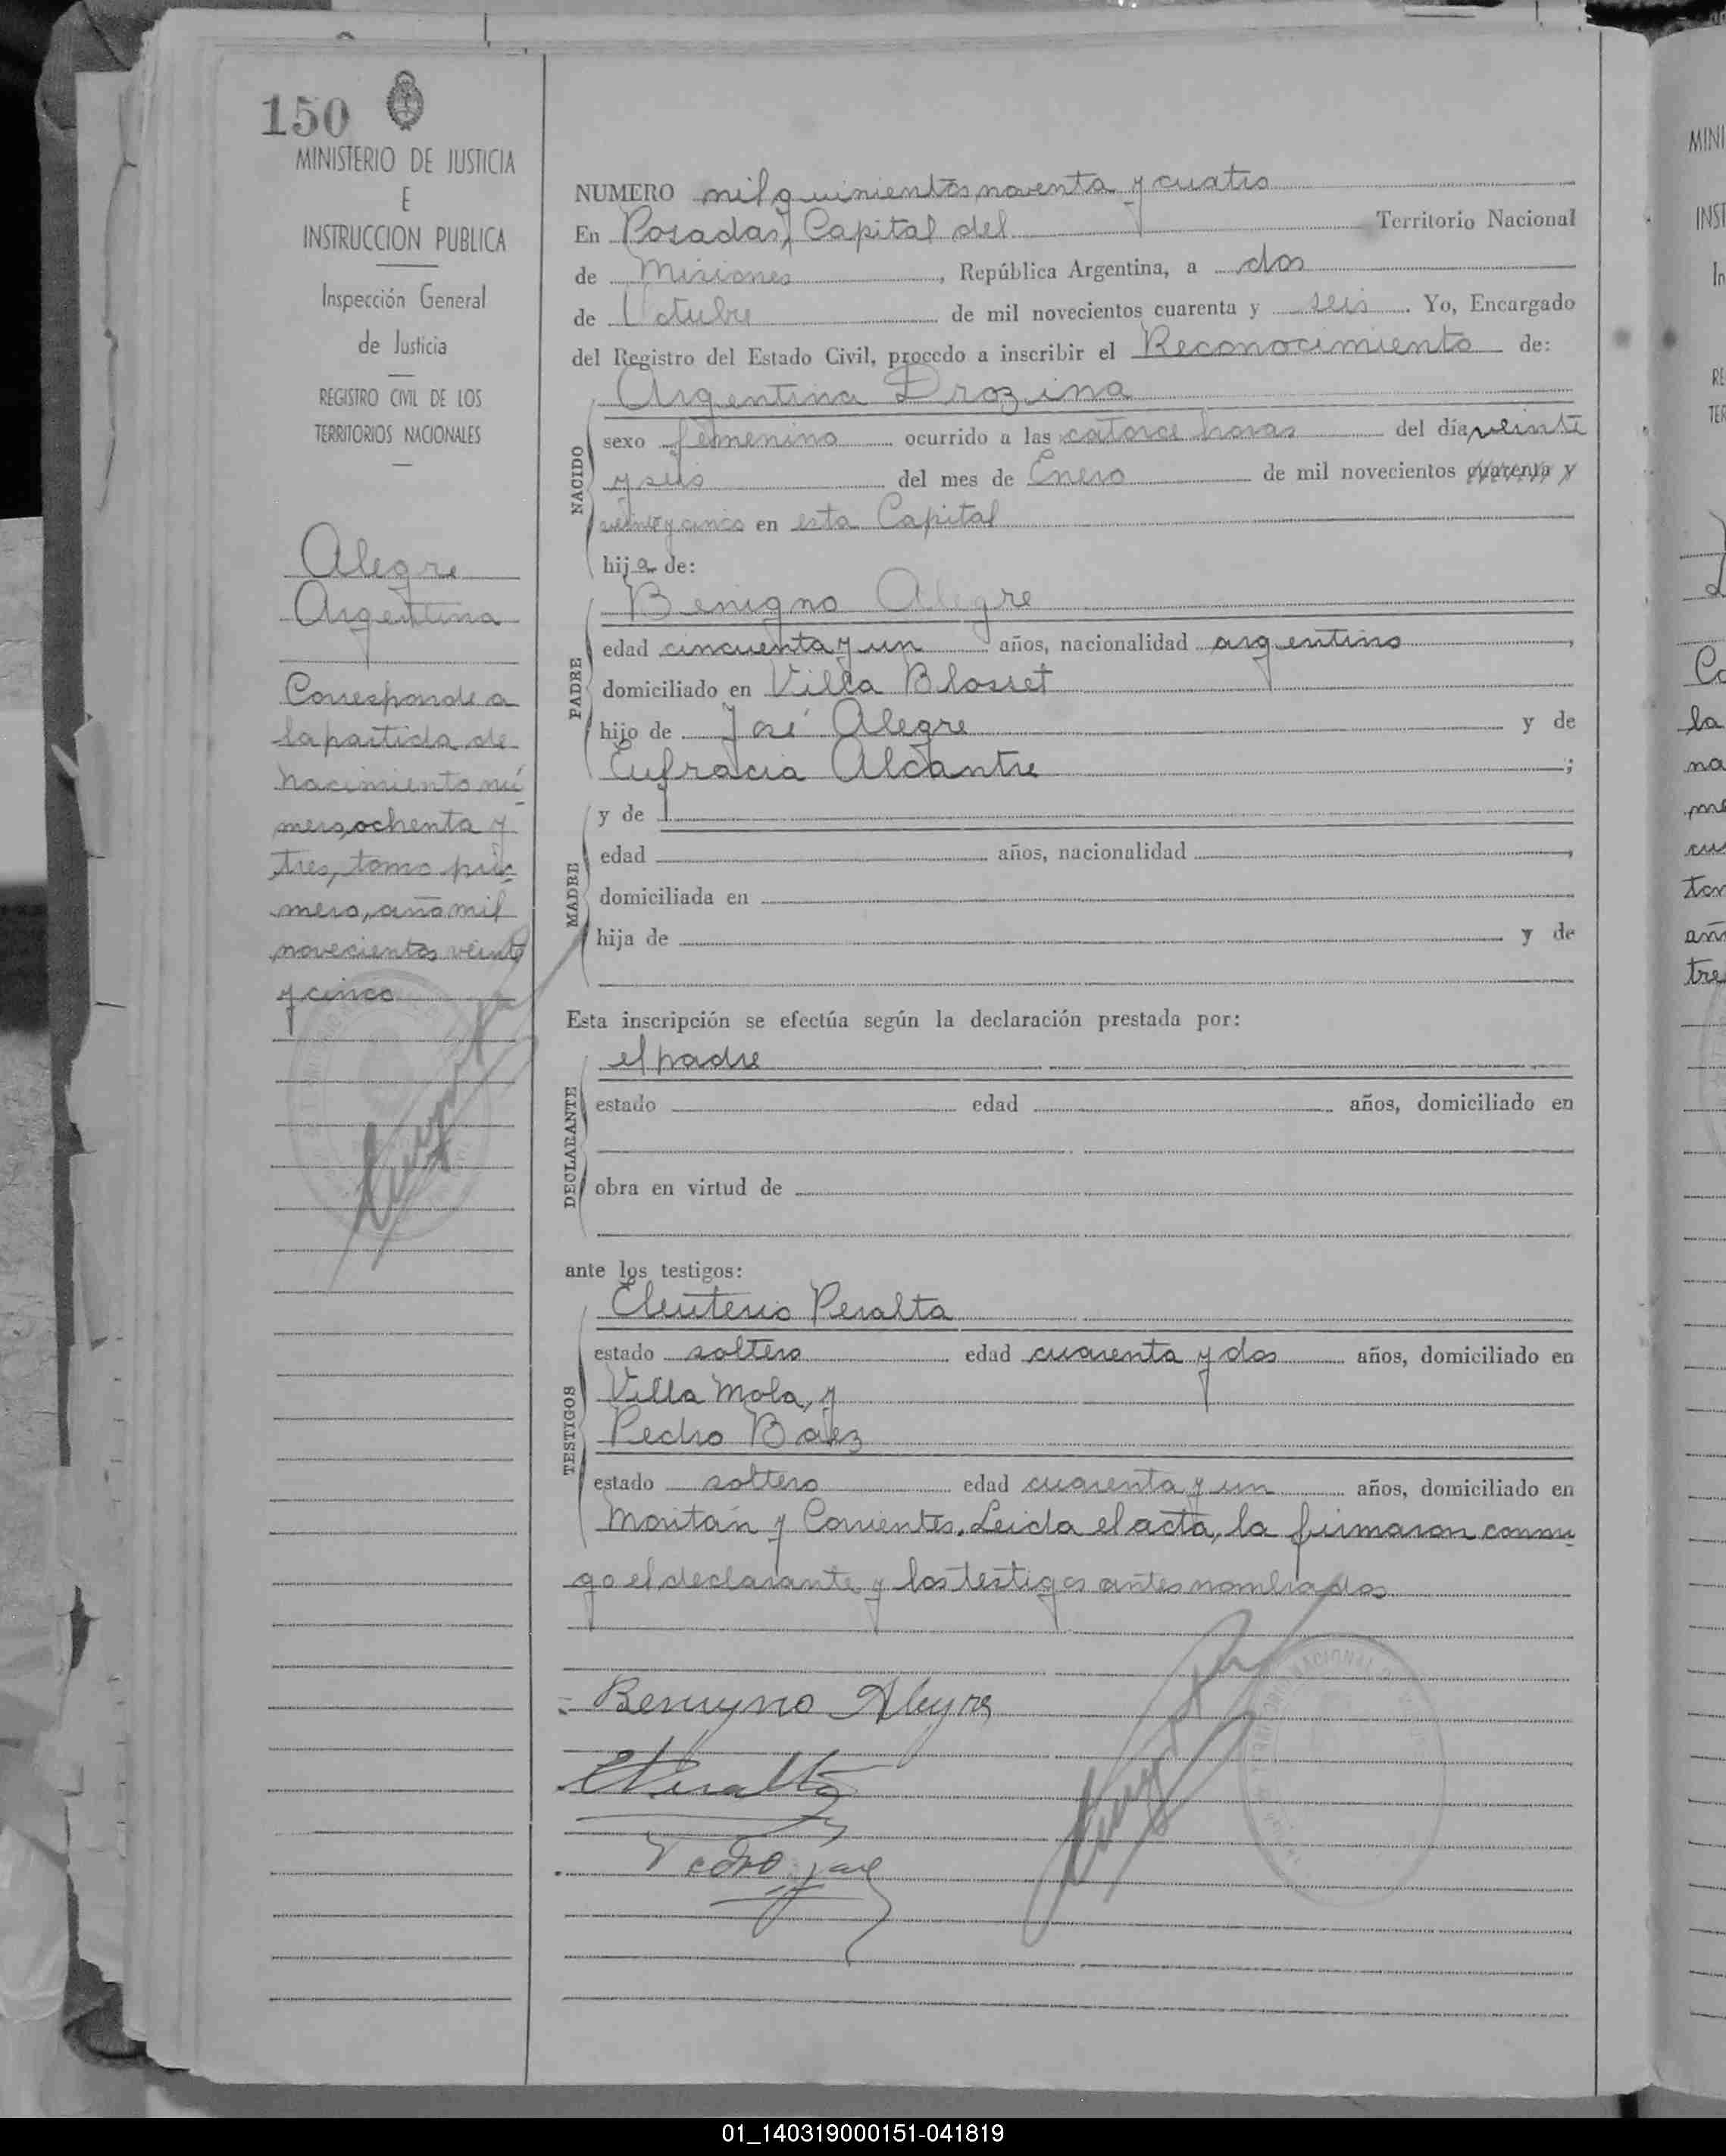 150
MINISTERIO DE JUSTICIA
E
INSTRUCCION PUBLICA
Inspección General
de Justicia
REGISTRO CIVIL DE LOS
TERRITORIOS NACIONALES
Alegre
Argentina
Corresponde a
la partida de
nacimiento nú
mero, ochenta y
tres, tomo pri-
mero, año mil
novecientos veinte
y cinco
NUMERO mil quinientos noventa y cuatro
En Posadas, Capital del Territorio Nacional
de Misiones, República Argentina, a dos
de Octubre de mil novecientos cuarenta y seis. Yo, Encargado
del Registro del Estado Civil, procedo a inscribir el Reconocimiento de:
Argentina Drozina
NACIDO
sexo femenino ocurrido a las catorce horas del día veinte
y seis del mes de Enero de mil novecientos cuarenta y
veinte y cinco en esta Capital
hija de:
PADRE
Benigno Alegre
edad cincuenta y un años, nacionalidad argentino,
domiciliado en Villa Blosset
hijo de José Alegre y de
Eufracia Alcantre;
MADRE
y de
edad años, nacionalidad,
domiciliada en
hija de y de
Esta inscripción se efectúa según la declaración prestada por:
DECLARANTE
el padre
estado edad años, domiciliado en
obra en virtud de
ante los testigos:
TESTIGOS
Eleuterio Peralta
estado soltero edad cuarenta y dos años, domiciliado en
Villa Mola, y
Pedro Baez
estado soltero edad cuarenta y un años, domiciliado en
Moritán y Corrientes. Leida el acta, la firmaron conmi
go el declarante y los testigos antes nombrados
Benigno Alegre
EPeralta
Pedro
01_140319000151-041819